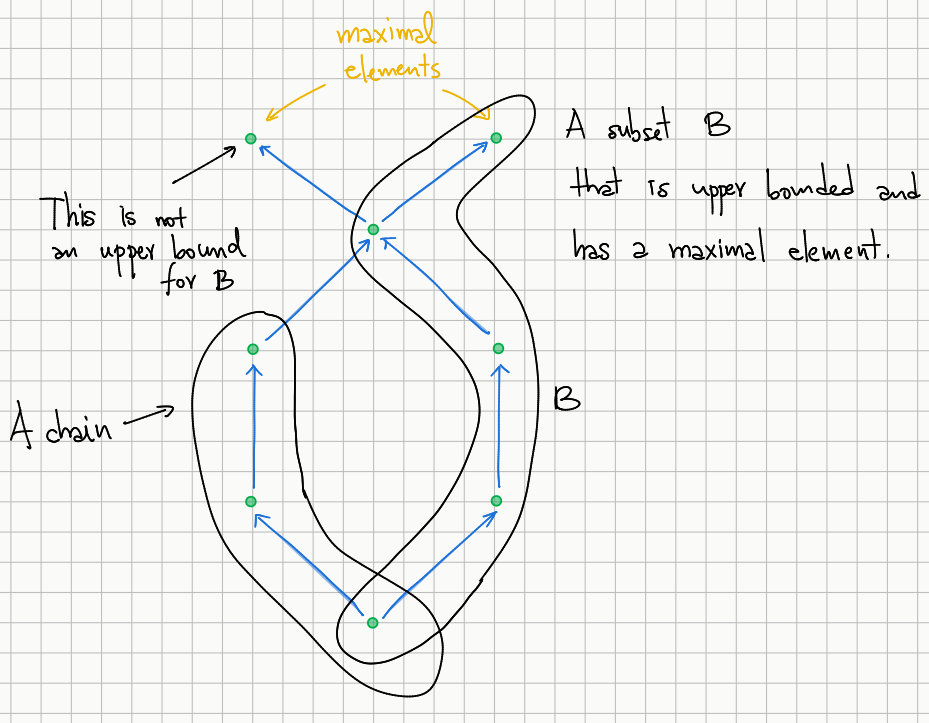 maximal
elements
A subset B
that is upper bounded and
has a maximal element.
This is not
an upper bound
for B
A chain
B